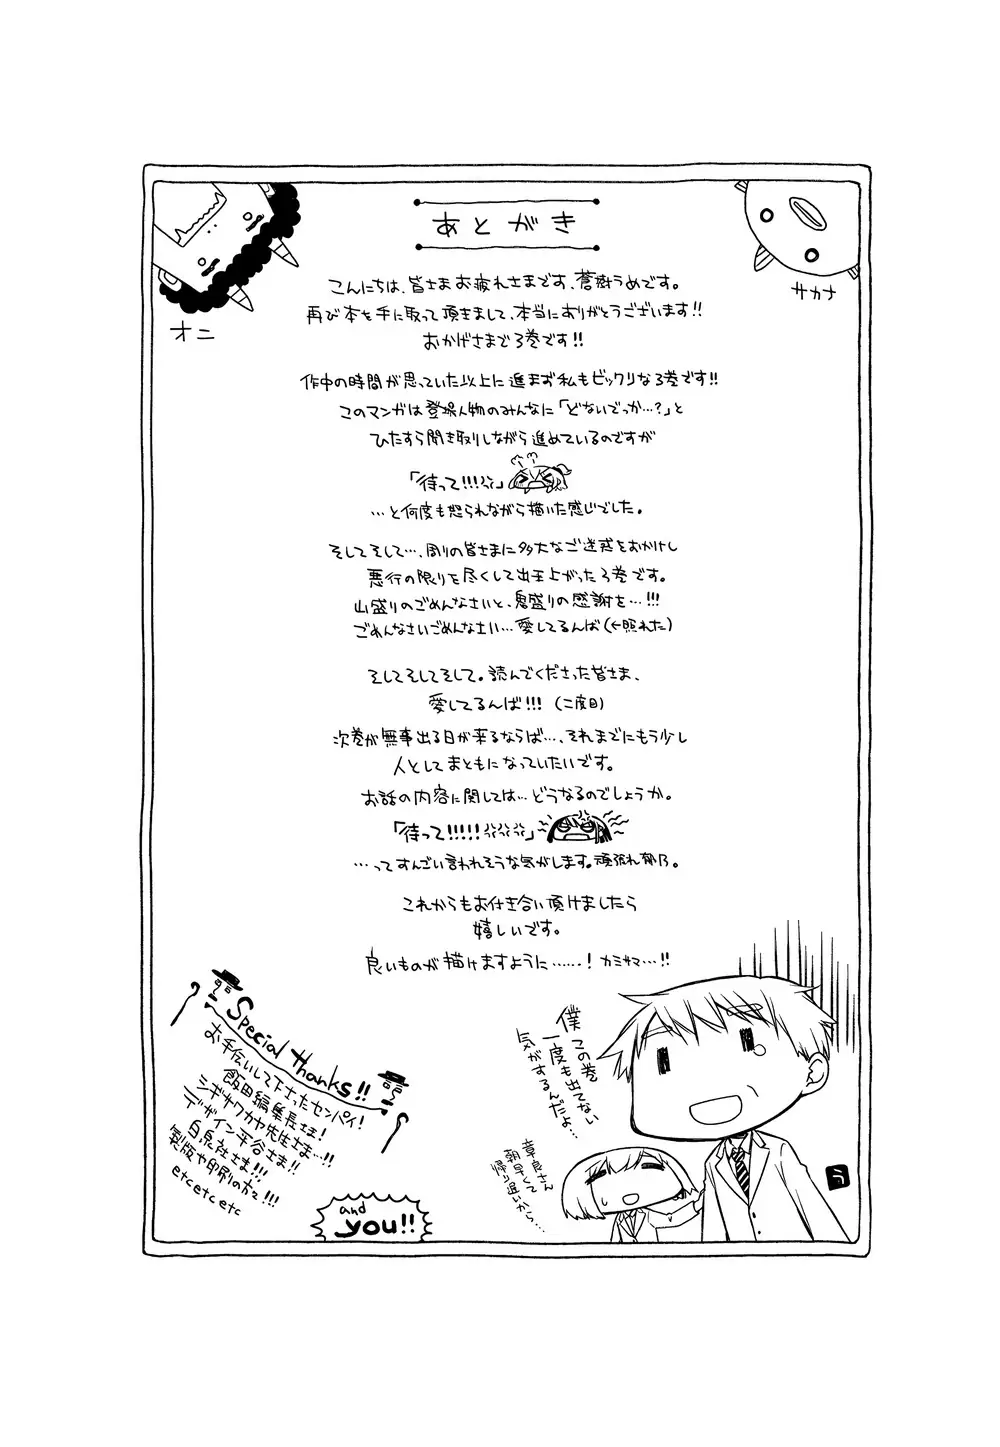 あとがき
オニ
サカナ
こんにちは、皆さまお疲れさまです、蒼樹うめです。
再び本を手に取って頂きまして、本当にありがとうございます!!
おかげさまで3巻です!!
作中の時間が思っていた以上に進まず私もビックリな3巻です!!
このマンガは登場人物のみんなに「どないでっか…?」と
ひたすら聞き取りしながら進めているのですが
「待って!!!」
…と何度も怒られながら描いた感じでした。
そしてそして…、周りの皆さまに多大なご迷惑をおかけし
悪行の限りを尽くして出来上がった3巻です。
山盛りのごめんなさいと、鬼盛りの感謝を…!!!
ごめんなさいごめんなさい…愛してるんば(←照れた)
そしてそしてそして。読んでくださった皆さま、
愛してるんば!!!(二度目)
次巻が無事出る日が来るならば…、それまでにもう少し
人としてまともになっていたいです。
お話の内容に関しては…どうなるのでしょうか。
「待って!!!!!」
…ってすんごい言われそうな気がします。頑張れ郁乃。
これからもお付き合い頂けましたら
嬉しいです。
良いものが描けますように……!カミサマ…!!
Special thanks!!
お手伝いして下さったセンパイ!
飯田編集長さま!
シギサワカヤ先生さま…!!
デザイン平谷さま!!
白泉社さま!!!
製版や印刷の方々!!!
etc etc etc
and
you!!
僕この巻
一度も出てない
気がするんだよ…
章良さん
朝早くて
帰り遅いから…
う